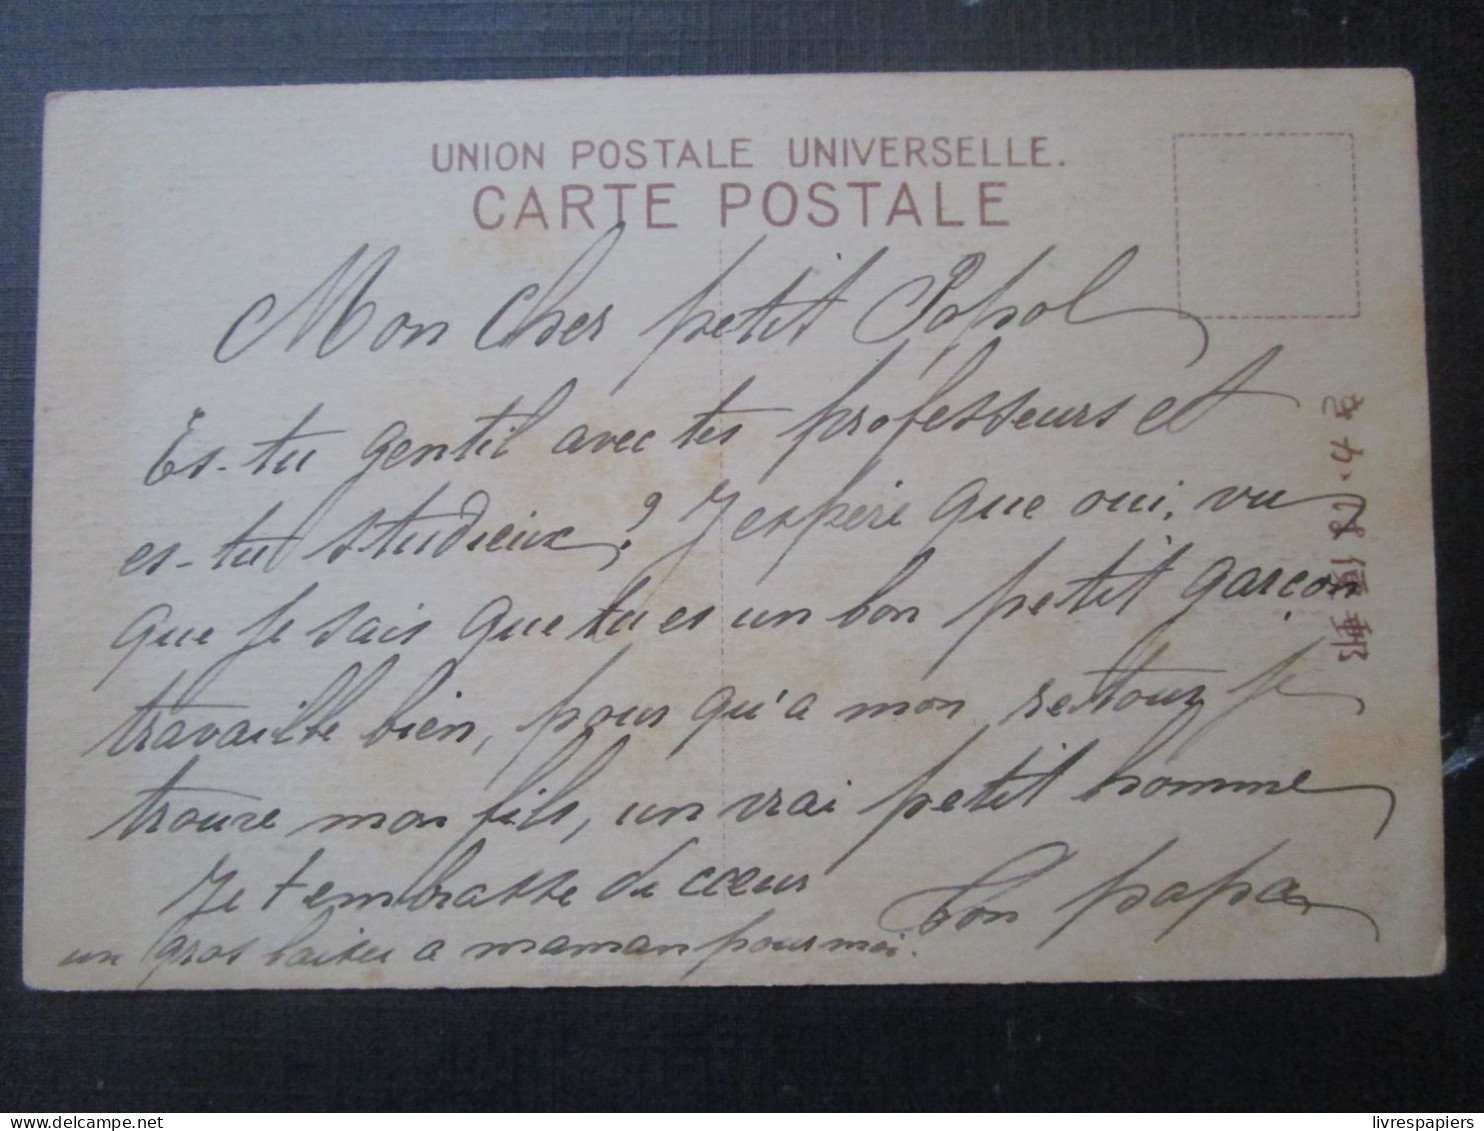 UNION POSTALE UNIVERSELLE.
CARTE POSTALE
Mon Cher petit Popol
Es-tu gentil avec tes professeurs et
es-tu studieux? J'espère que oui, vu
que je sais que tu es un bon petit garçon
travaille bien, pour qu'a mon retour je
trouve mon fils, un vrai petit homme
Je t'embrasse du cœur
Ton papa
un gros baiser a maman pour moi.
きかは便郵
livrespapiers